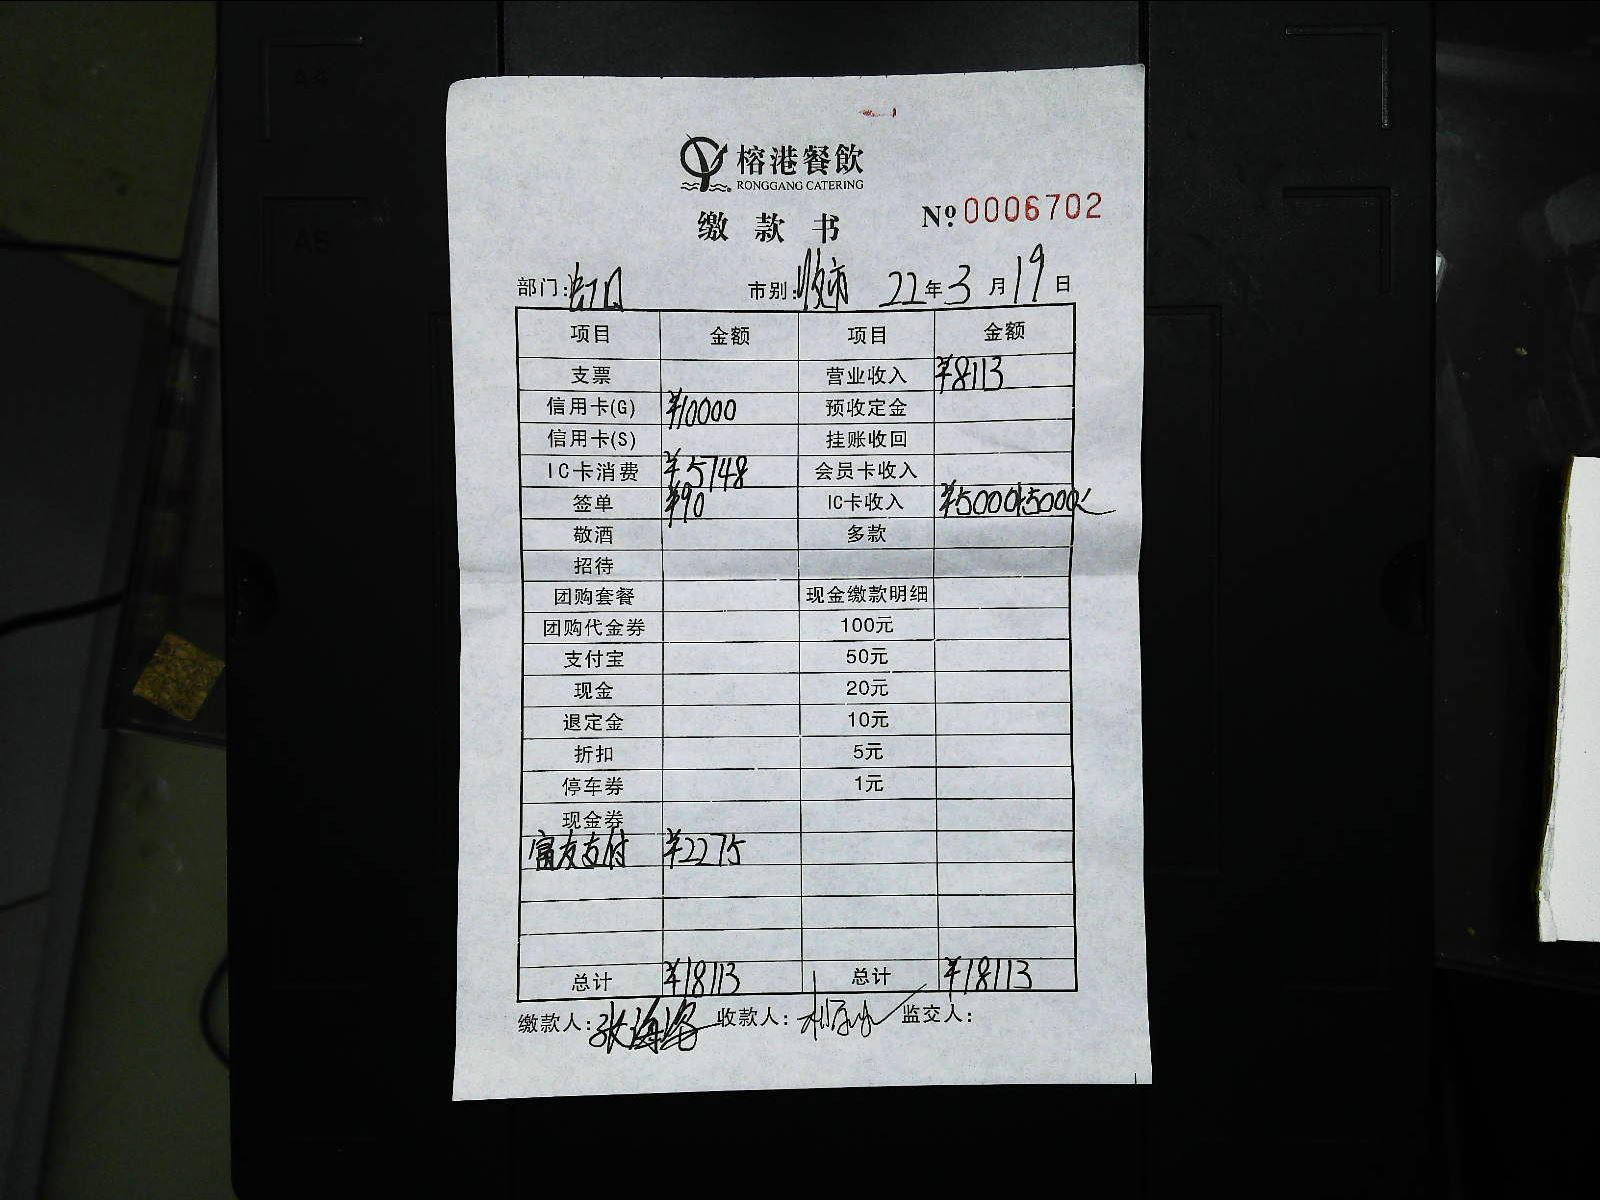 榕港餐飲
RONGGANG CATERING
缴款书 Nº 0006702
部门: 市别: 晚市 22年3月19日
项目 金额 项目 金额
支票 营业收入 ¥8113
信用卡(G) ¥10000 预收定金
信用卡(S) 挂账收回
IC卡消费 ¥5748 会员卡收入
签单 ¥90 IC卡收入 ¥5000+5000
敬酒 多款
招待
团购套餐 现金缴款明细
团购代金券 100元
支付宝 50元
现金 20元
退定金 10元
折扣 5元
停车券 1元
现金券
富友支付 ¥2275
总计 ¥18113 总计 ¥18113
缴款人: 张海 收款人: 监交人:
A4
A5